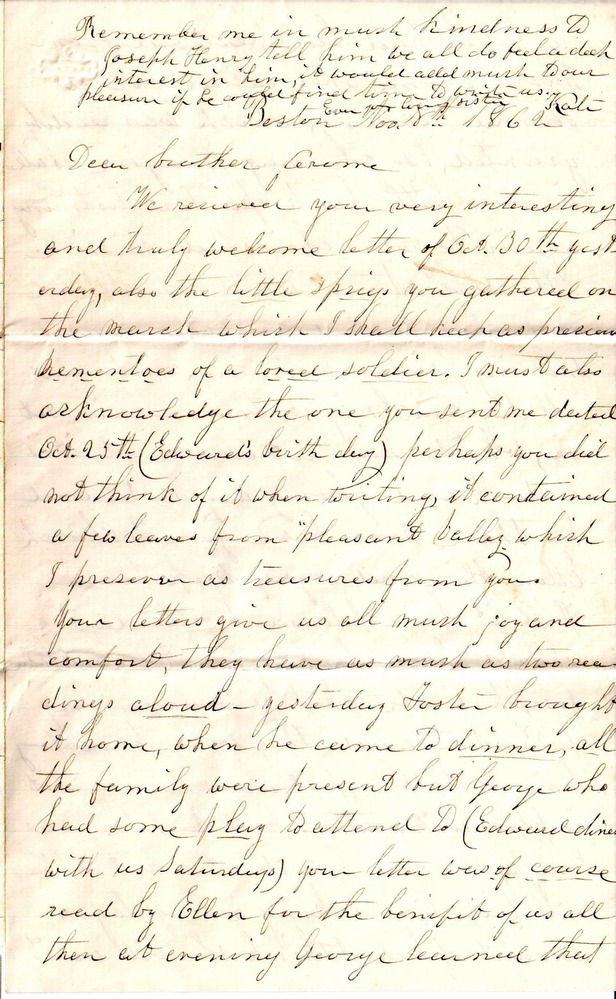 Remember me in much kindness to
Joseph Henry tell him we all do feel a deep
interest in him, it would add much to our
pleasure if he could find time to write us.
Ever your loving sister Kate
Boston Nov. 8th 1862
Dear brother Jerome
We recieved your very interesting
and truly welcome letter of Oct. 30th yest
erday, also the little sprigs you gathered on
the march which I shall keep as precious
mementoes of a loved soldier. I must also
acknowledge the one you sent me dated
Oct. 25th (Edward's birth day) perhaps you did
not think of it when writing, it contained
a few leaves from "pleasant Valley which
I preserve as treasures from you.
Your letters give us all much joy and
comfort, they have as much as two rea
dings aloud - yesterday Foster brought
it home, when he came to dinner, all
the family were present but George who
had some play to attend to (Edward dines
with us Saturdays) your letter was of course
read by Ellen for the benifit of us all
then at evening George learned that